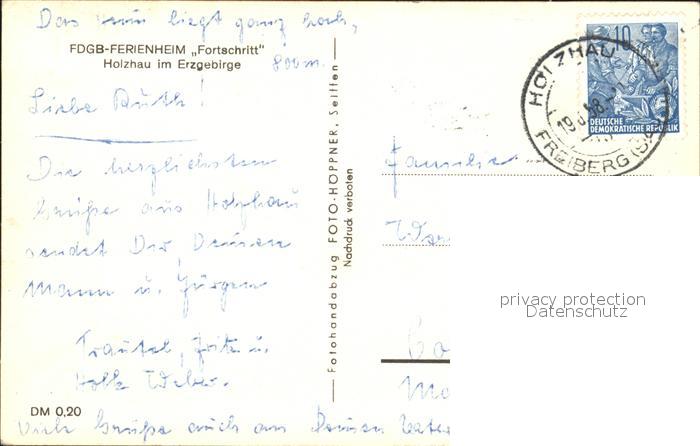 Das Heim liegt ganz hoch,
800 m.
FDGB-FERIENHEIM „Fortschritt"
Holzhau im Erzgebirge
Liebe Ruth!
Die herzlichsten
Grüße aus Holzhau
sendet Dir, Deinen
Mann u. Jürgen
Trautel, Fritz u.
Weber.
DM 0,20
Viele Grüße auch an Deinen Vater
Fotohandabzug FOTO-HÖPPNER, Seiffen
Nachdruck verboten
10
DEUTSCHE
DEMOKRATISCHE REPUBLIK
HOLZHAU
FREIBERG (S
Familie
privacy protection
Datenschutz